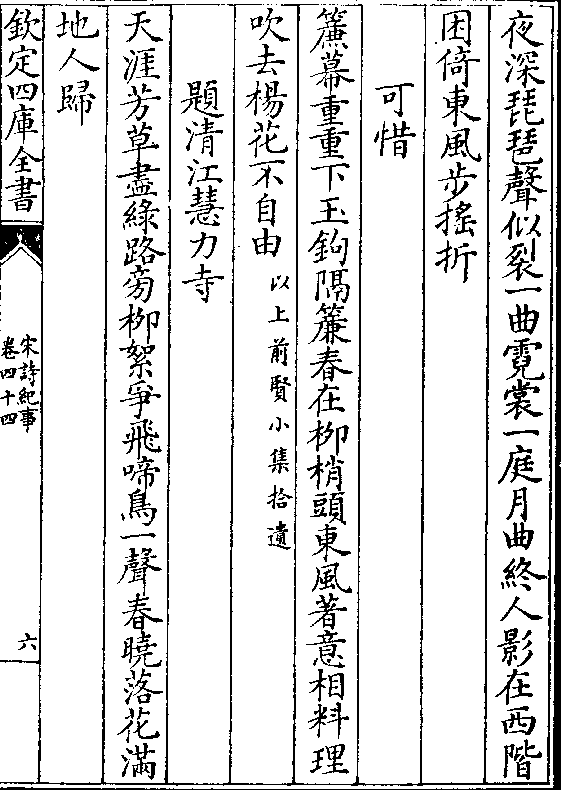 夜深琵琶聲似裂一曲霓裳一庭月曲終人影在西階
困倚東風步搖折
可惜
簾幕重重下玉鉤隔簾春在柳梢頭東風著意相料理
吹去楊花不自由以上前賢小集拾遺
題清江慧力寺
天涯芳草盡綠路旁柳絮爭飛啼鳥一聲春曉落花滿
地人歸
欽定四庫全書
宋詩紀事
卷四十四
六